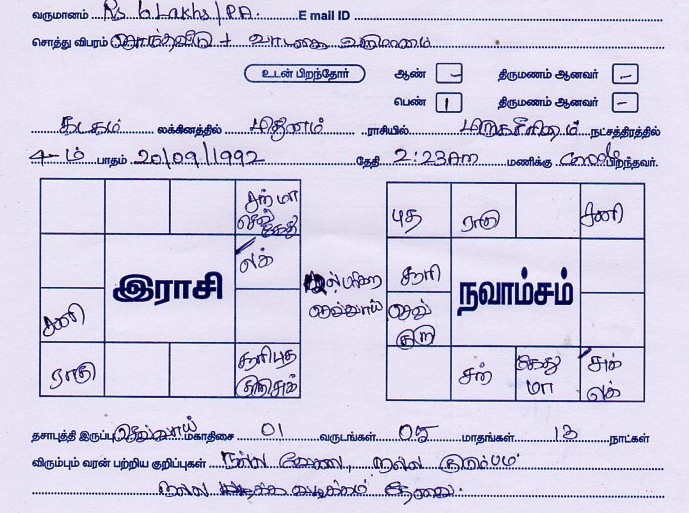 வருமானம் Rs 6 Lakhs/PA. E mail ID
சொத்து விபரம் சொந்தவீடு + வாடகை வருமானம்
உடன் பிறந்தோர் ஆண் - திருமணம் ஆனவர் -
பெண் 1 திருமணம் ஆனவர் -
கடகம் லக்கினத்தில் மிதுனம் ராசியில் மிருகசீரிஷம் நட்சத்திரத்தில்
4-ம் பாதம் 20/09/1992 தேதி 2:23Am மணிக்கு பிறந்தவர்.
சந் மா
செவ் கேது
லக்
இராசி
சனி
ராகு
சூரி புத
குரு சுக்
செவ்வாய்
புத ராகு சனி
சூரி
செவ்
குரு
நவாம்சம்
சந் கேது
மா
சுக்
லக்
தசாபுத்தி இருப்பு செவ்வாய் மகாதிசை 01 வருடங்கள் 05 மாதங்கள் 13 நாட்கள்
விரும்பும் வரன் பற்றிய குறிப்புகள் நல்ல வேலை, நல்ல குடும்பம்
நல்ல பழக்கம் தேவை.